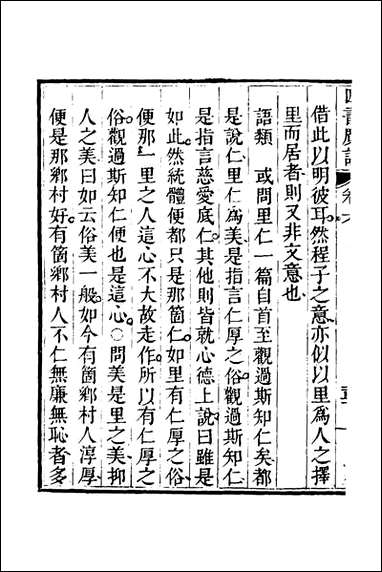 借此以明彼耳然程子之意亦似以里爲人之擇
里而居者則又非文意也
語類　或問里仁一篇自首至觀過斯知仁矣都
是說仁里仁爲美是指言仁厚之俗觀過斯知仁
是指言慈愛底仁其他則皆就心德上說曰雖是
如此然統體便都只是那箇仁如里有仁厚之俗
便那一里之人這心不大故走作所以有仁厚之
俗觀過斯知仁便也是這心○問美是里之美抑
人之美曰如云俗美一般如今有箇鄉村人淳厚
便是那鄉村好有箇鄉村人不仁無廉無恥者多